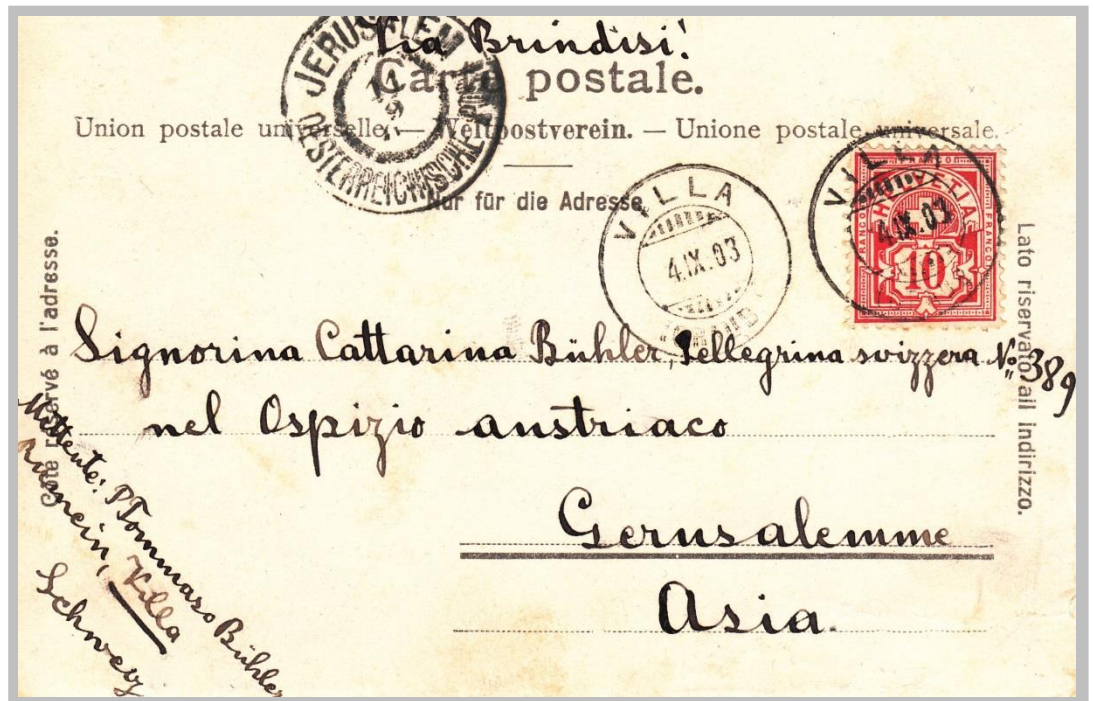 Via Brindisi!
Carte postale.
Union postale universelle. — Weltpostverein. — Unione postale universale.
Nur für die Adresse
JERUSALEM
OESTERREICHISCHE POST
VILLA
4.IX.03
VILLA
4.IX.03
FRANCO
HELVETIA
FRANCO
10
Côté réservé à l'adresse.
Lato riservato all indirizzo.
Signorina Cattarina Bühler, Pellegrina svizzera No. 389
nel Ospizio austriaco
Gerusalemme
Asia.
Mittente: P Tommaso Bühler
Villa
Schweiz